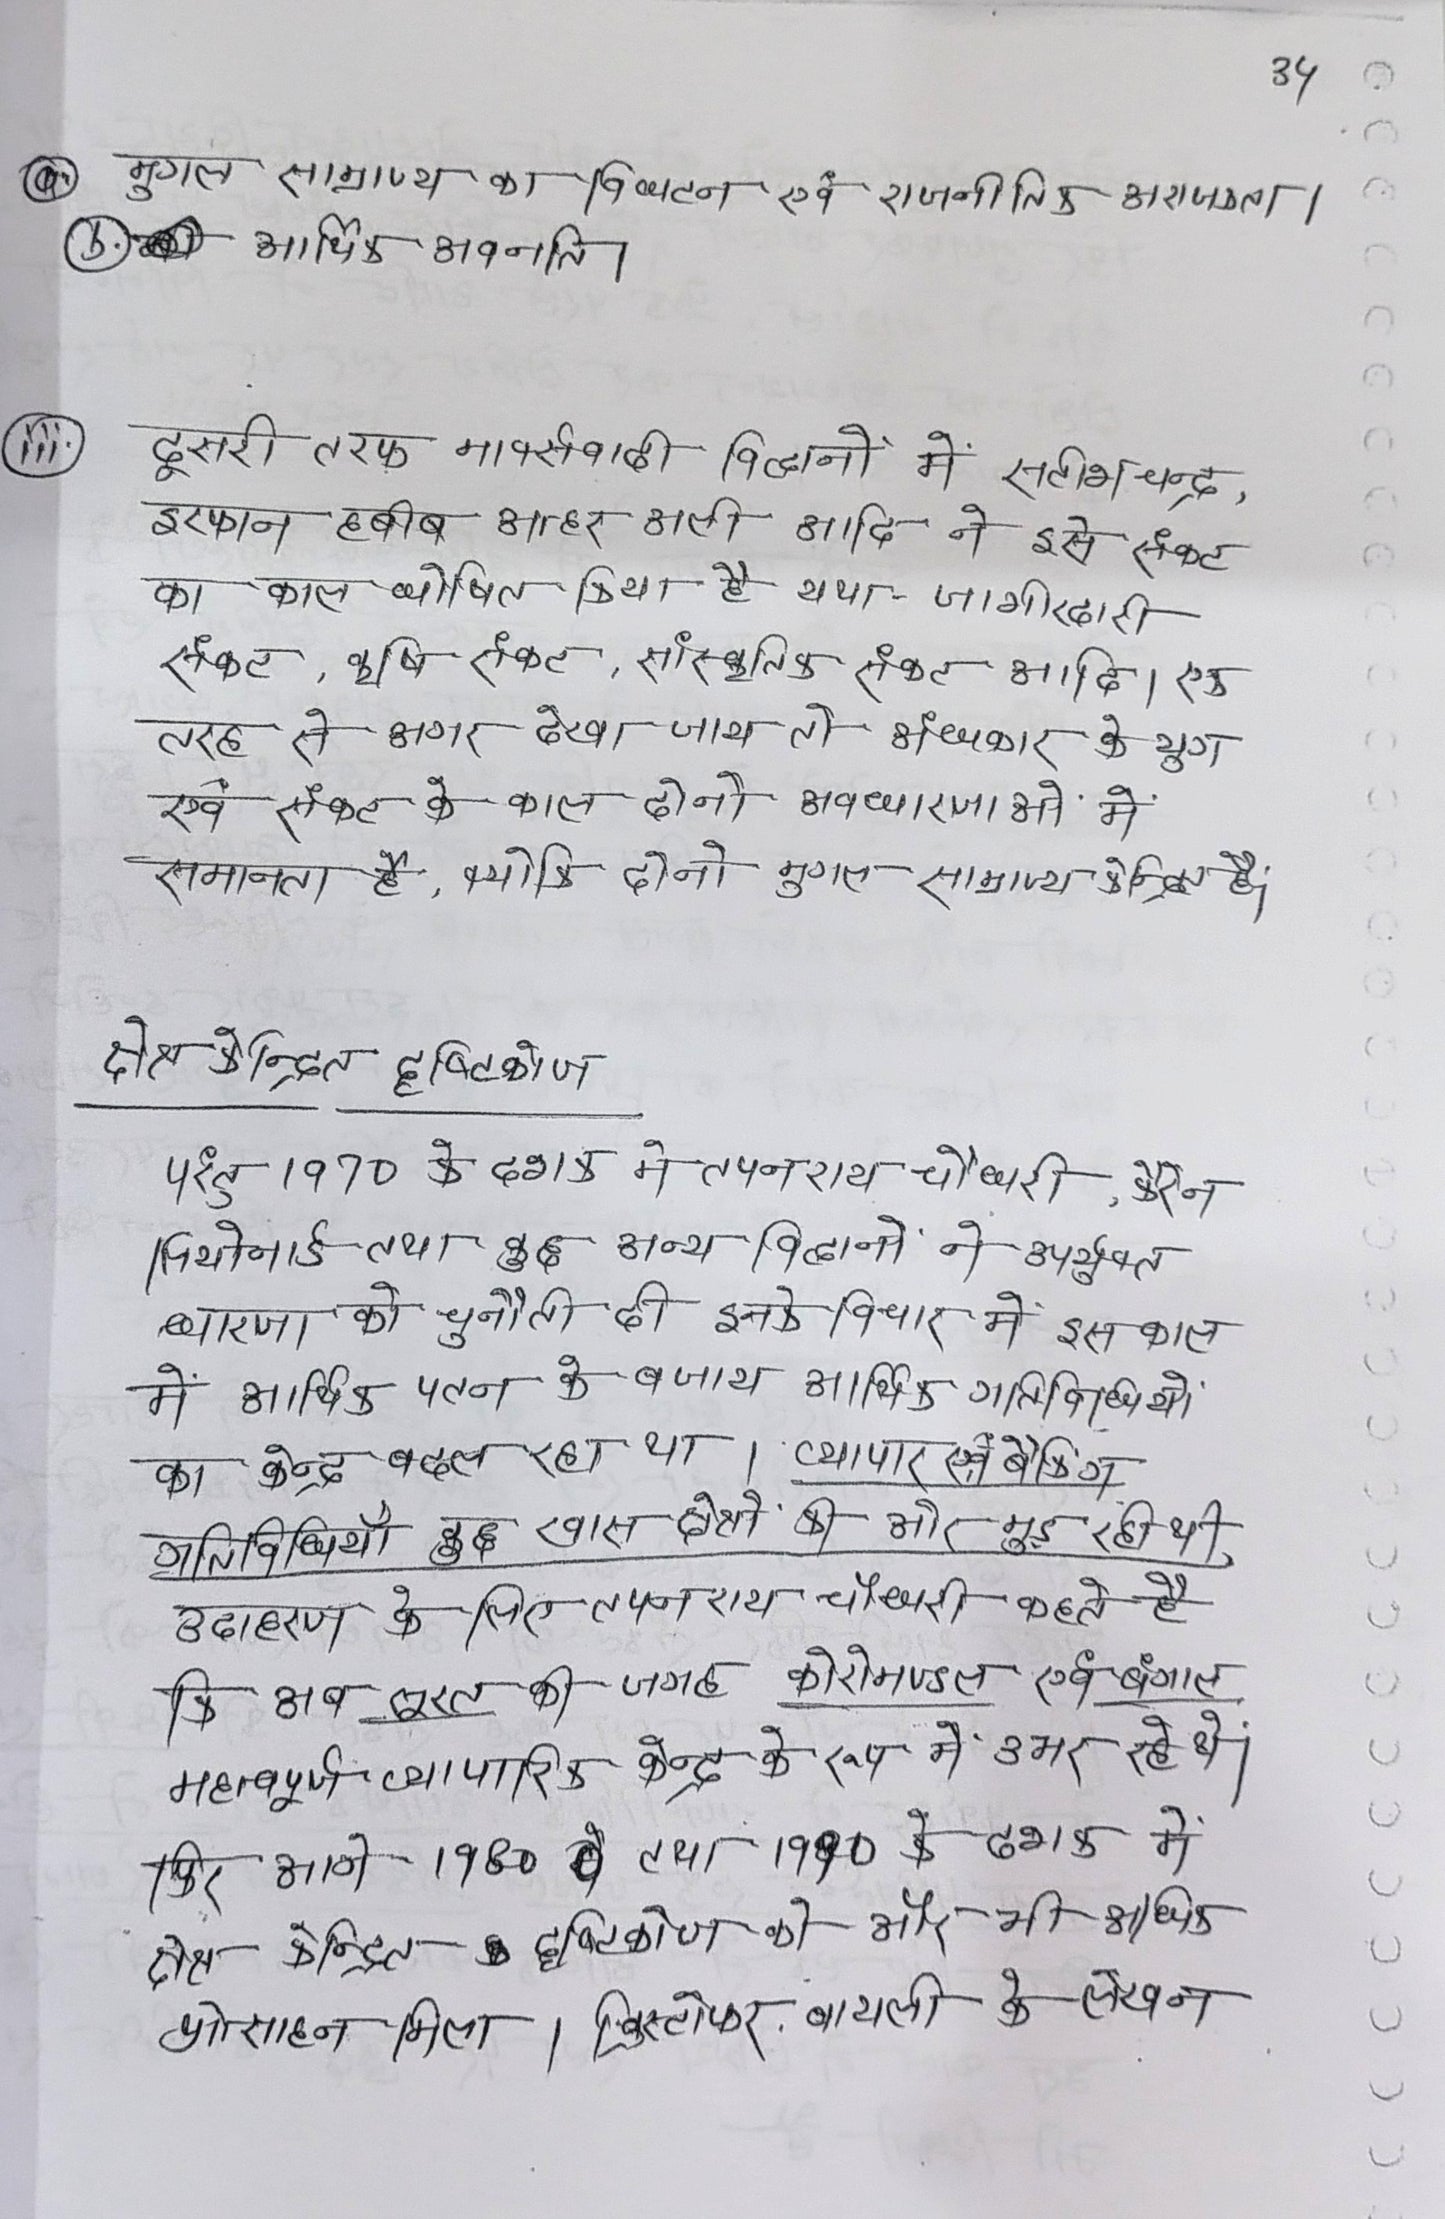 34
a. मुगल साम्राज्य का विघटन एवं राजनीतिक अराजकता।
b. आर्थिक अवनति।
iii. दूसरी तरफ मार्क्सवादी विद्वानों में सतीश चन्द्र,
इरफान हबीब आहर अली आदि ने इसे संकट
का काल घोषित किया है यथा- जागीरदारी
संकट, कृषि संकट, सांस्कृतिक संकट आदि। एक
तरह से अगर देखा जाय तो अंधकार के युग
एवं संकट के काल दोनों अवधारणाओं में
समानता है, क्योकि दोनो मुगल साम्राज्य केन्द्रित है।
क्षेत्र केन्द्रित दृष्टिकोण
परंतु 1970 के दशक मे तपन राय चौधरी, केरेन
लियोनार्ड तथा कुछ अन्य विद्वानों ने उपर्युक्त
धारणा को चुनौती दी इनके विचार में इस काल
में आर्थिक पतन के बजाय आर्थिक गतिविधियों
का केन्द्र बदल रहा था। व्यापार एवं बैकिंग
गतिविधियाँ कुछ खास क्षेत्रों की ओर मुड़ रही थी,
उदाहरण के लिए तपन राय चौधरी कहते है
कि अब सूरत की जगह कोरोमण्डल एवं बंगाल
महत्वपूर्ण व्यापारिक केन्द्र के रूप में उभर रहे थे।
फिर आगे 1980 तथा 1990 के दशक में
क्षेत्र केन्द्रित दृष्टिकोण को और भी अधिक
प्रोत्साहन मिला। क्रिस्टोफर. बायली के लेखन